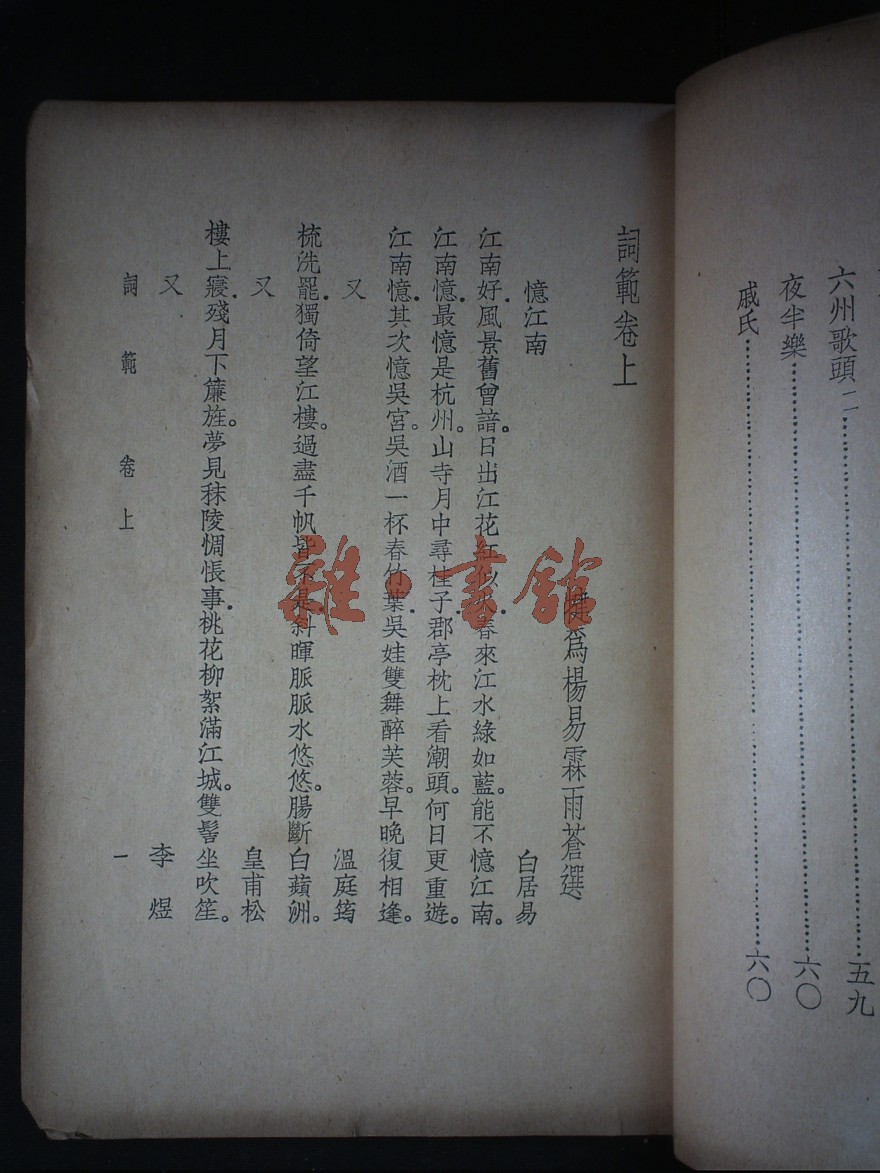 六州歌頭二⋯⋯五九
夜半樂⋯⋯六〇
戚氏⋯⋯六〇
詞範卷上
犍為楊易霖雨蒼選
憶江南 白居易
江南好.風景舊曾諳。日出江花紅似火.春來江水綠如藍。能不憶江南。
江南憶.最憶是杭州。山寺月中尋桂子.郡亭枕上看潮頭。何日更重遊。
江南憶.其次憶吳宮。吳酒一杯春竹葉.吳娃雙舞醉芙蓉。早晚復相逢。
又 溫庭筠
梳洗罷.獨倚望江樓。過盡千帆皆不是.斜暉脈脈水悠悠。腸斷白蘋洲。
又 皇甫松
樓上寢.殘月下簾旌。夢見秣陵惆悵事.桃花柳絮滿江城。雙髻坐吹笙。
又 李煜
詞範 卷上 一
雜·書館